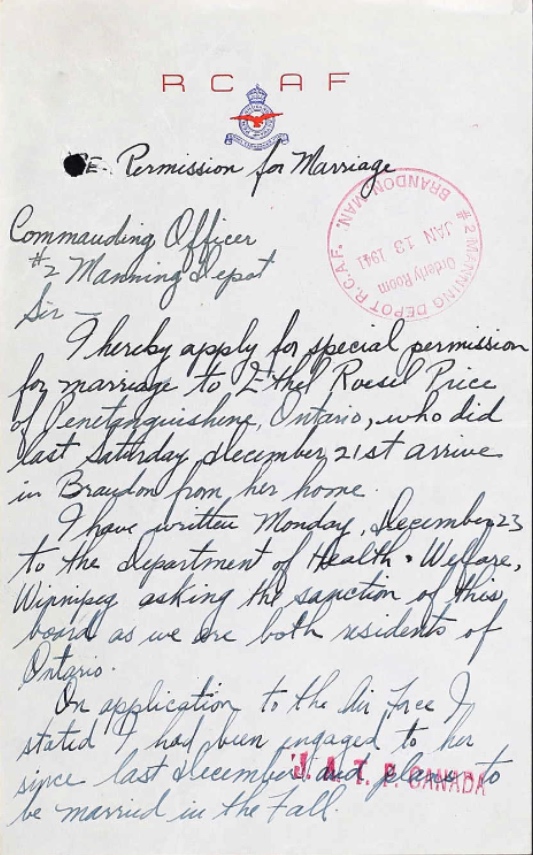 R C A F
RE. Permission for Marriage
#2 MANNING DEPOT R.C.A.F.
BRANDON, MAN.
JAN 13 1941
Orderly Room
Commanding Officer
#2 Manning Depot
Sir —
I hereby apply for special permission
for marriage to Ethel Roesel Price
of Penetanguishene, Ontario, who did
last Saturday, December 21st arrive
in Brandon from her home.
I have written Monday, December 23
to the department of Health & Welfare,
Winnipeg asking the sanction of this
board as we are both residents of
Ontario.
On application to the Air Force I
stated I had been engaged to her
since last December and plans to
J. A. T. P. CANADA
be married in the Fall.